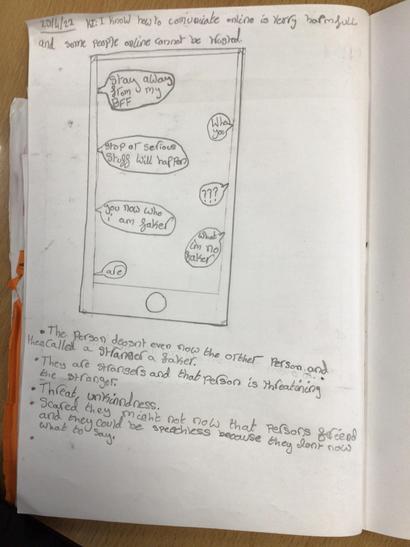 20/6/22 KI: I know how to comuvicate online is very harmfull
and some people online cannot be trusted.
Stay away
from my
BFF
Who
you
Stop or serious
stuff will happen
???
you now who
i am faker
What
i'm no
faker
are
• The person doesnt even now the orther person and
they called a stranger a faker.
• They are strangers and that person is threatining
the stranger.
• Threat, unkindness.
• Scared they might not now that persons friend
and they could be speechless because they dont now
what to say.
•